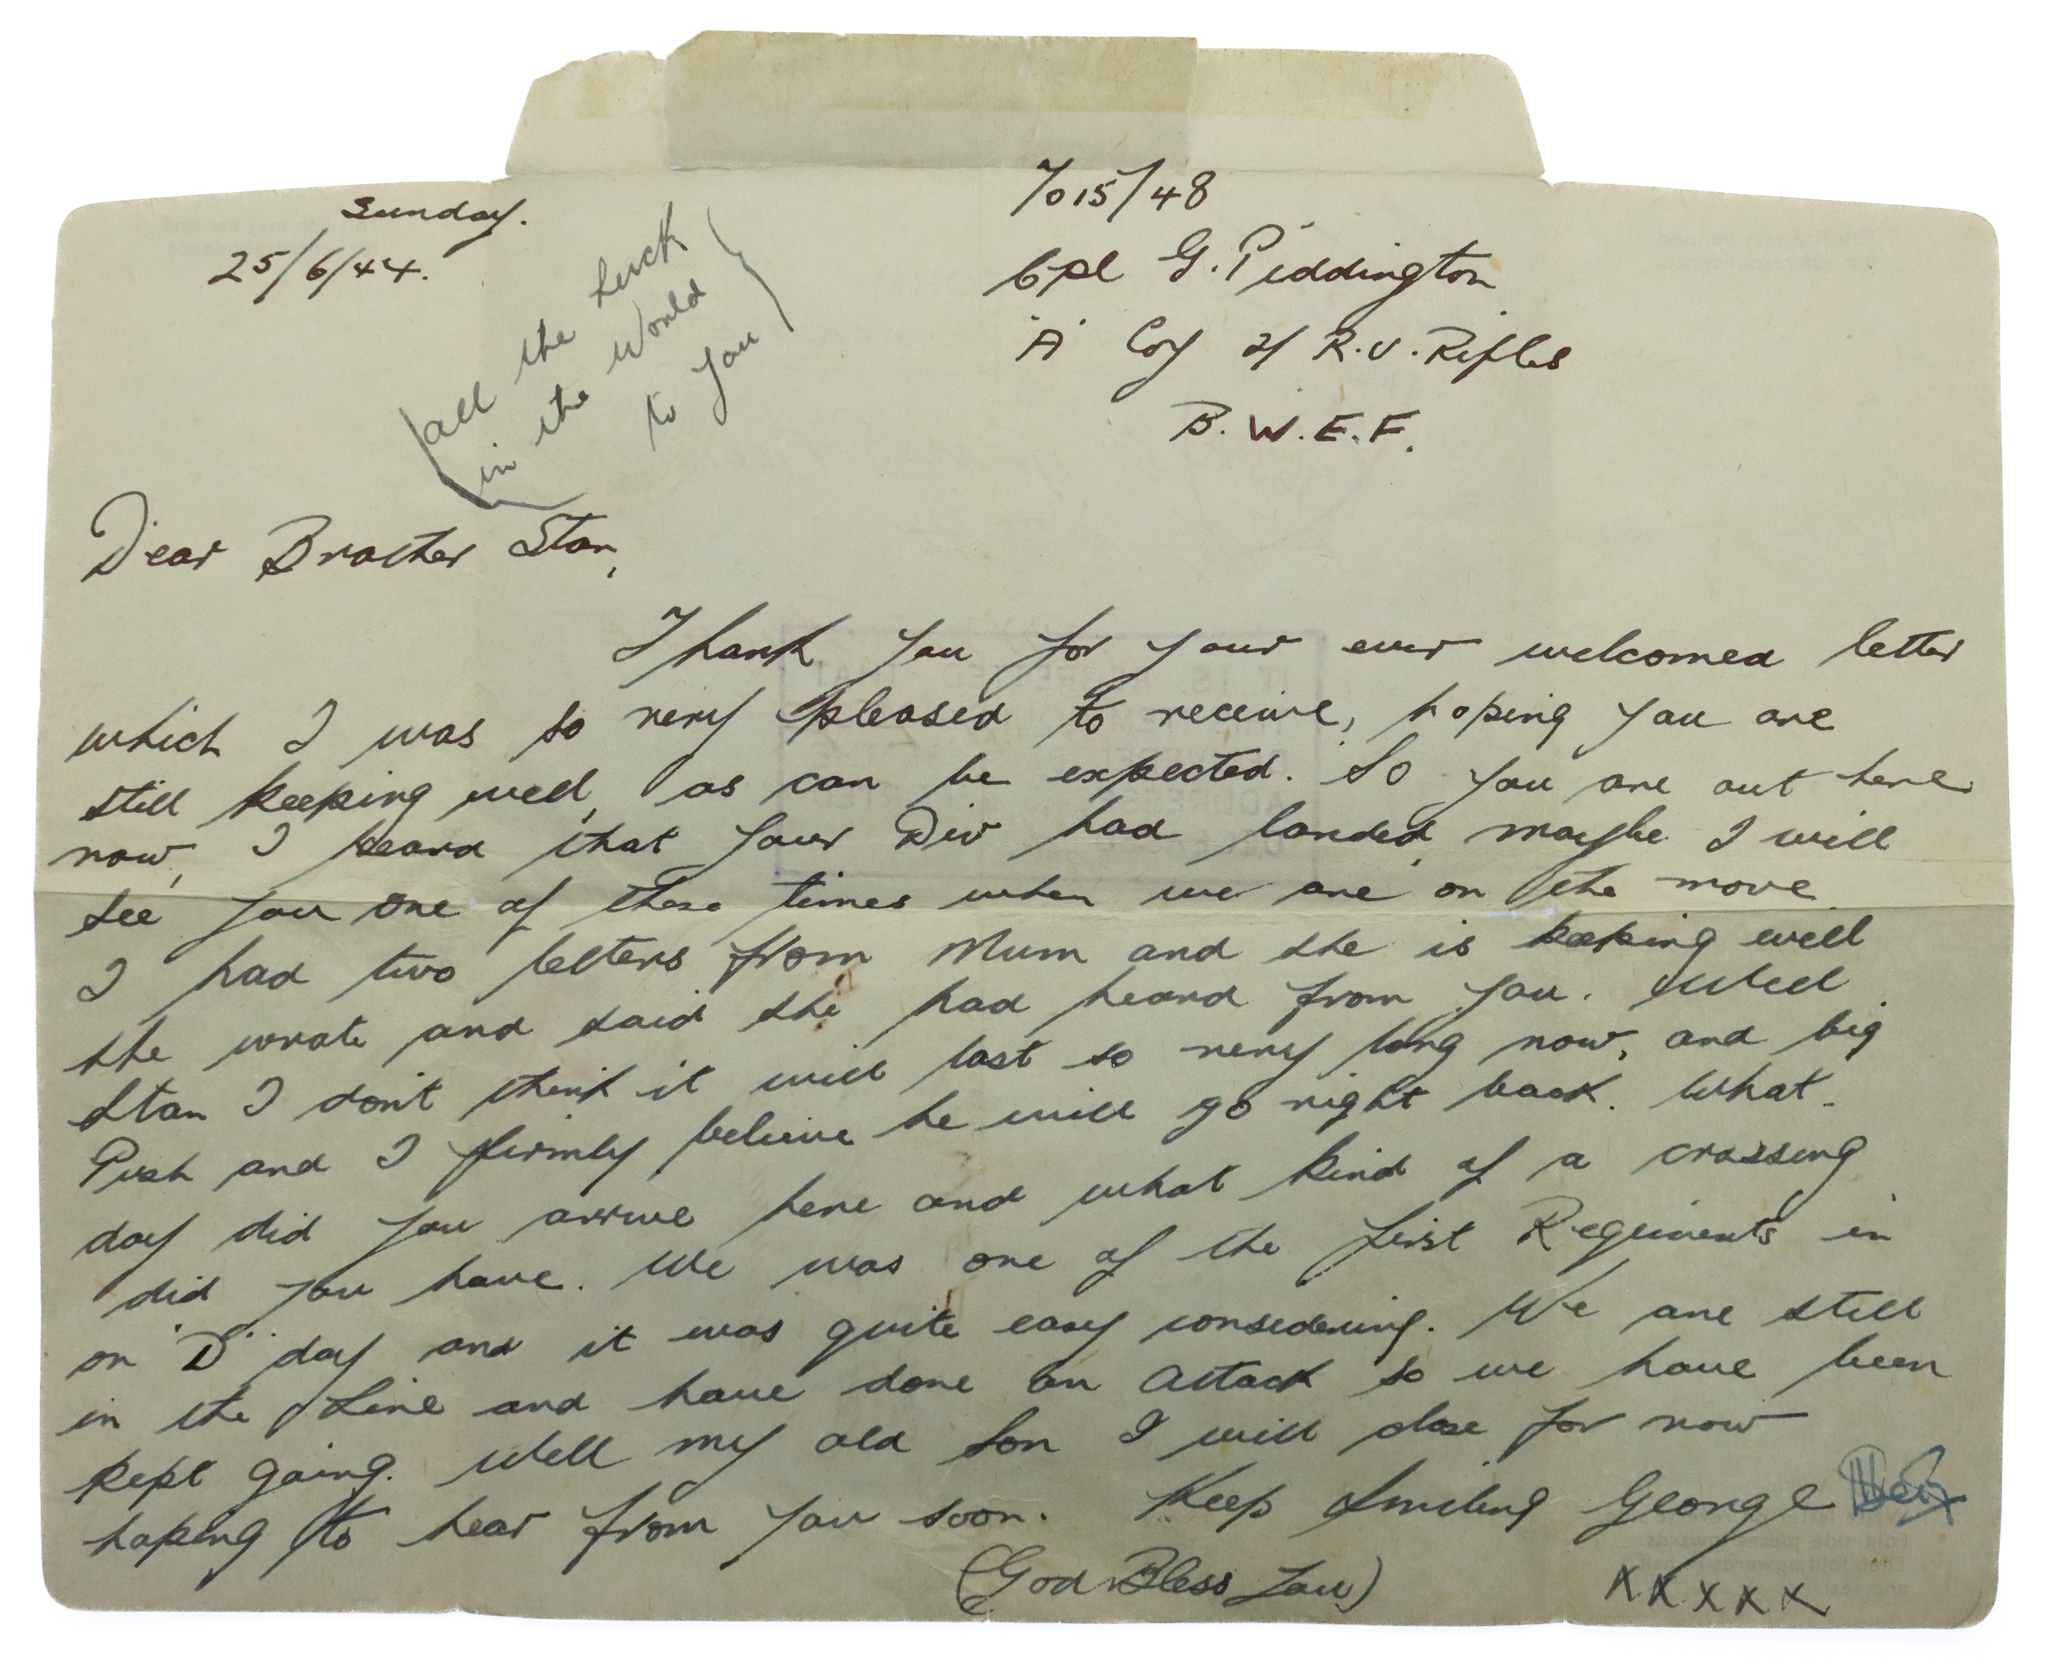 Sunday.
25/6/44.
(All the Luck
in the World
to you)
7015748
Cpl G. Piddington
'A' Coy 2/ R.U. Rifles
B.W.E.F.
Dear Brother Stan,
Thank you for your ever welcomed letter
which I was so very pleased to receive, hoping you are
still keeping well, as can be expected. So you are out here
now, I heard that your Div had landed, maybe I will
see you one of these times when we are on the move.
I had two letters from Mum and she is keeping well
she wrote and said she had heard from you. Well
Stan I don't think it will last so very long now, and big
Push and I firmly believe he will go right back. What
day did you arrive here and what kind of a crossing
did you have. We was one of the first Regiments in
on "D" day and it was quite easy considering. We are still
in the Line and have done an Attack so we have been
kept going. Well my old Son I will close for now
hoping to hear from you soon. Keep Smiling George
(God Bless You)
x x x x x